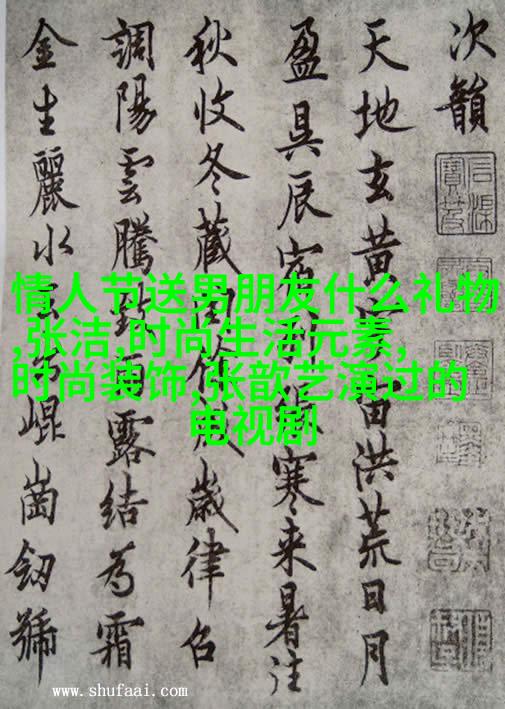 次韻
天地玄黃宇宙洪荒日月
盈昃辰宿列張寒来暑往
秋收冬藏閏餘成歲律召
調陽雲騰致雨露結為霜
金生麗水玉出崐崗劒號
情人节送男朋友什么礼物
,张洁,时尚生活元素,
时尚装饰,张歆艺演过的
电视剧
www.shufaai.com